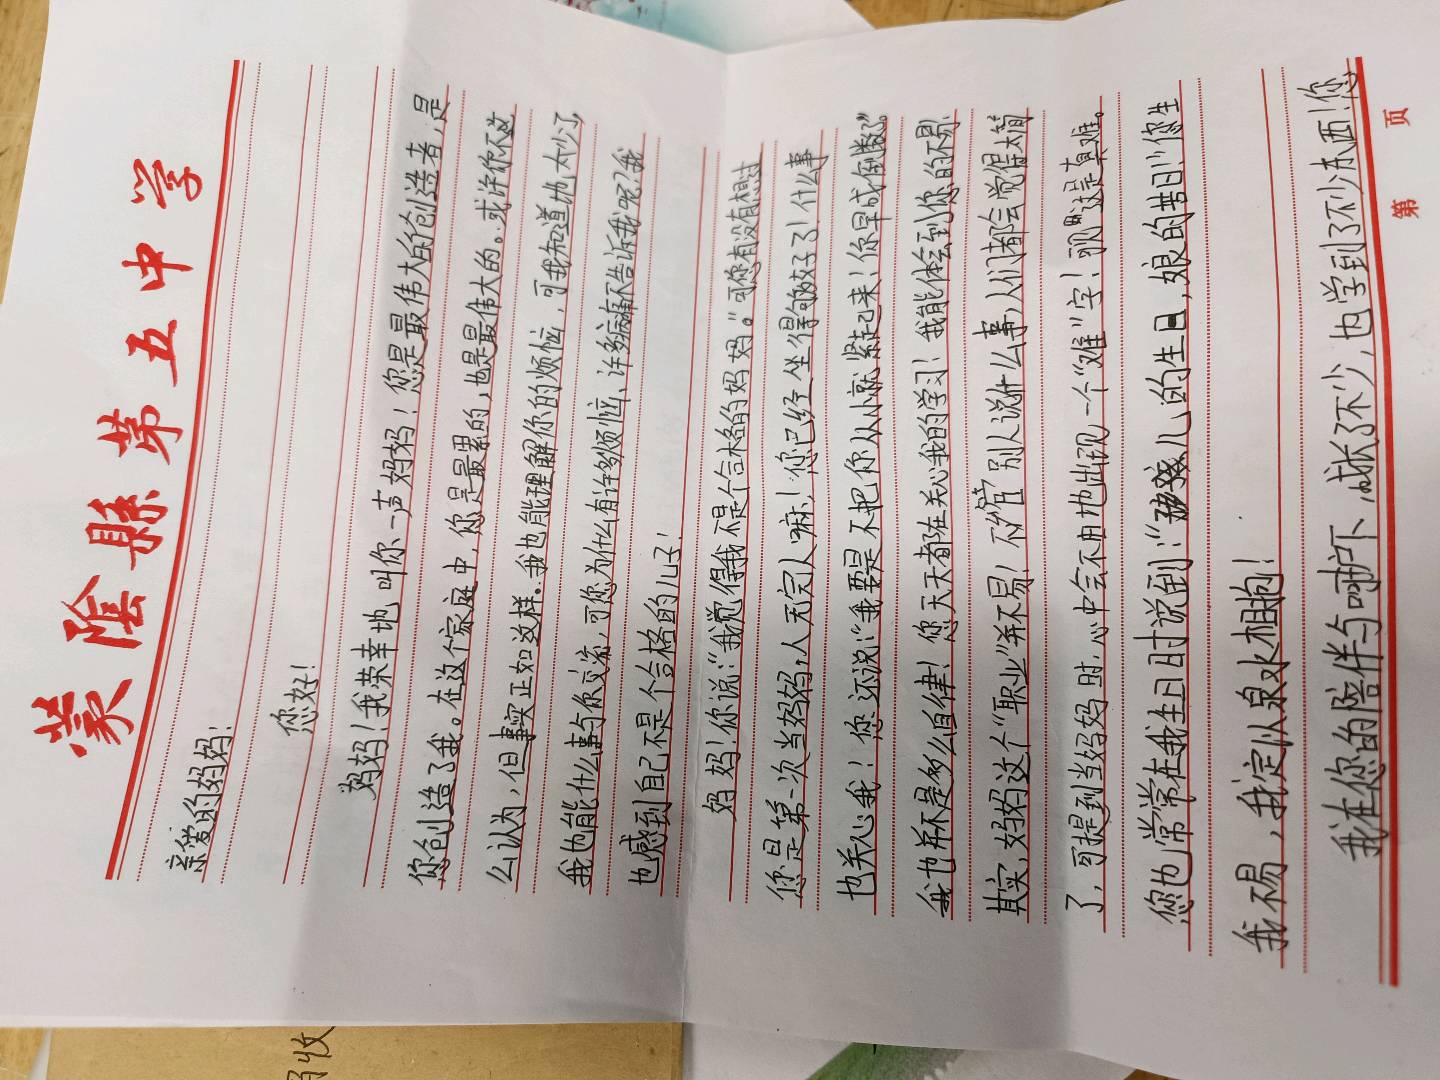 蒙陰縣第五中学
亲爱的妈妈！
您好！
妈妈！我荣幸地叫你一声妈妈！您是最伟大的创造者，是
你创造了我。在这个家庭中，你是最累的，也是最伟大的。或许你不这
么认为，但事实正如这样。我也能理解你的烦恼，可我知道也太少了，
我也能什么事与你交流，可您为什么有许多烦恼、许多不告诉我呢？我
也感到自己不是个合格的儿子！
妈妈！你说：“我觉得我不是个合格的妈妈。”可您有没有想过
您是第一次当妈妈，人无完人嘛！您已经坐得够好了！什么事
也关心我！您还说：“我要是不把你从小就紧起来！你早成倒数了。”
我也并不是多么自律！您天天都在关心我的学习！我能体会到你的不易！
其实，妈妈这个“职业”并不易！不管别人说什么事，人们都会觉得太简
了，可提到当妈妈时，心中会不由地出现一个“难”字！那是真难。
您也常常在我生日时说到：“孩儿的生日，娘的苦日”您生
我不易，我定以泉水相抱！
我在您的陪伴与呵护下，成长了不少，也学到了不少东西！您
第 页
收